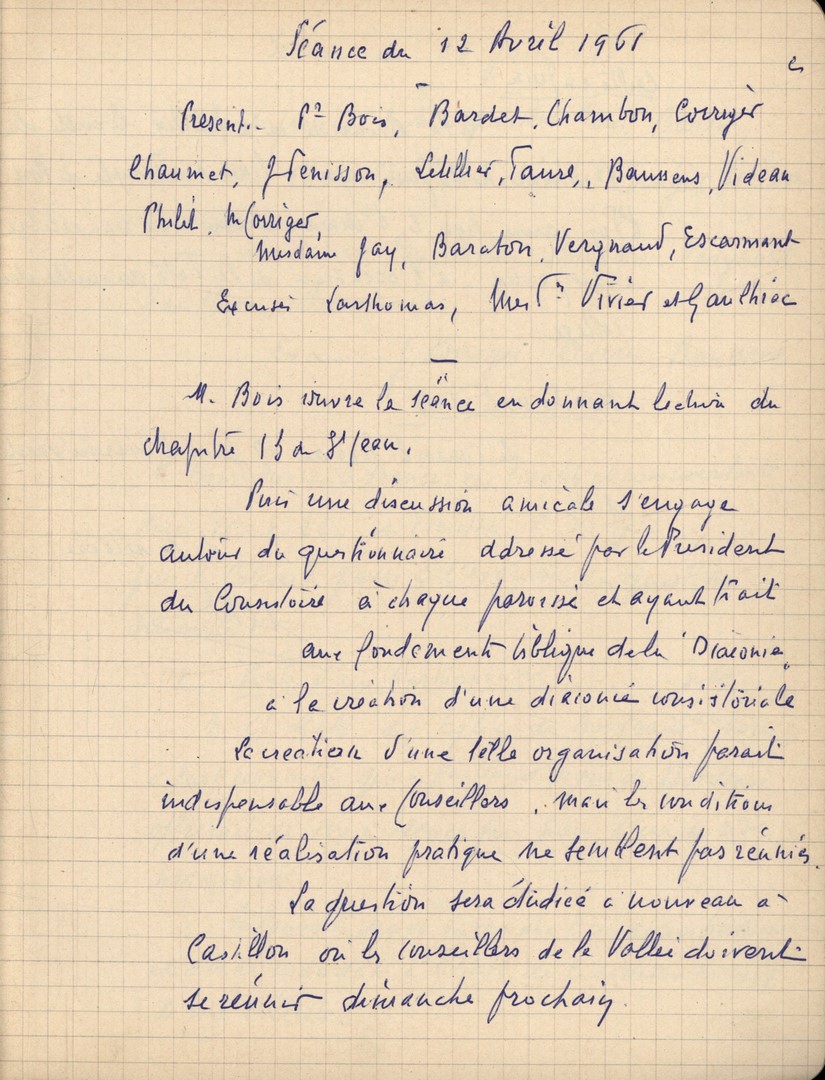 Séance du 12 Avril 1961
Present.. Pr Bois, Bardet, Chambon, Corriger
Chaumet, Jenisson, Letellier, Faure, Baussens, Videau
Philit, M Corriger,
Mesdame Jay, Baraton, Vergnaud, Escarmant
Excusés Larthomas, Mes Vivier et Gaulhiac
M. Bois ouvre la séance en donnant lecture du
chapitre 13 de St Jean.
Puis une discussion amicale s'engage
autour du questionnaire adressé par le Président
du Consistoire à chaque paroisse et ayant trait
aux fondements biblique de la "Diaconie"
à la création d'une diaconie consistoriale
La creation d'une telle organisation parait
indispensable aux Conseillers, mais les conditions
d'une réalisation pratique ne semblent pas réunies.
La question sera étudiée à nouveau à
Castillon où les conseillers de la Vallée doivent
se réunir dimanche prochain.